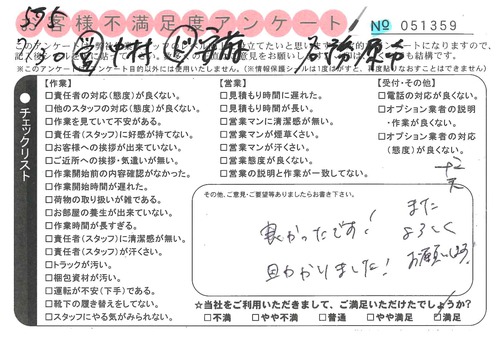 お客様不満足度アンケート
№ 051359
【作業】
□責任者の対応(態度)が良くない。
□他のスタッフの対応(態度)が良くない。
□作業を見ていて不安がある。
□責任者(スタッフ)に好感が持てない。
□お客様への挨拶が出来ていない。
□ご近所への挨拶・気遣いが無い。
□作業開始前の内容確認がなかった。
□作業開始時間が遅れた。
□荷物の取り扱いが雑である。
□お部屋の養生が出来ていない。
□作業時間が長すぎる。
□責任者(スタッフ)に清潔感が無い。
□責任者(スタッフ)が汗くさい。
□トラックが汚い。
□梱包資材が汚い。
□運転が不安(下手)である。
□靴下の履き替えをしてない。
□スタッフにやる気がみられない。
【営業】
□見積もり時間に遅れた。
□見積もり時間が長い。
□営業マンに清潔感が無い。
□営業マンが煙草くさい。
□営業マンが汗くさい。
□営業態度が良くない。
□営業の説明と作業が一致してない。
【受付・その他】
□電話の対応が良くない。
□オプション業者の説明
・作業が良くない。
□オプション業者の対応
(態度)が良くない。
チェックリスト
その他、ご意見・ご要望等ありましたらお書き下さい。
良かったです!
助かりました!
また
よろしく
お願いします!
☆当社をご利用いただきまして、ご満足いただけたでしょうか?
□不満 □やや不満 □普通 □やや満足 □満足